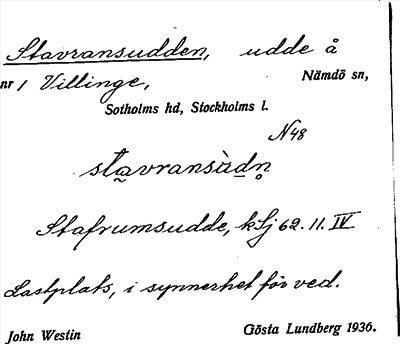 Stavransudden, udde å
nr 1 Villinge, Nämdö sn,
Sotholms hd, Stockholms l.
N48
stavransùdn̥
Stafrumsudde, kSj 62.11.IV
Lastplats, i synnerhet för ved.
John Westin Gösta Lundberg 1936.